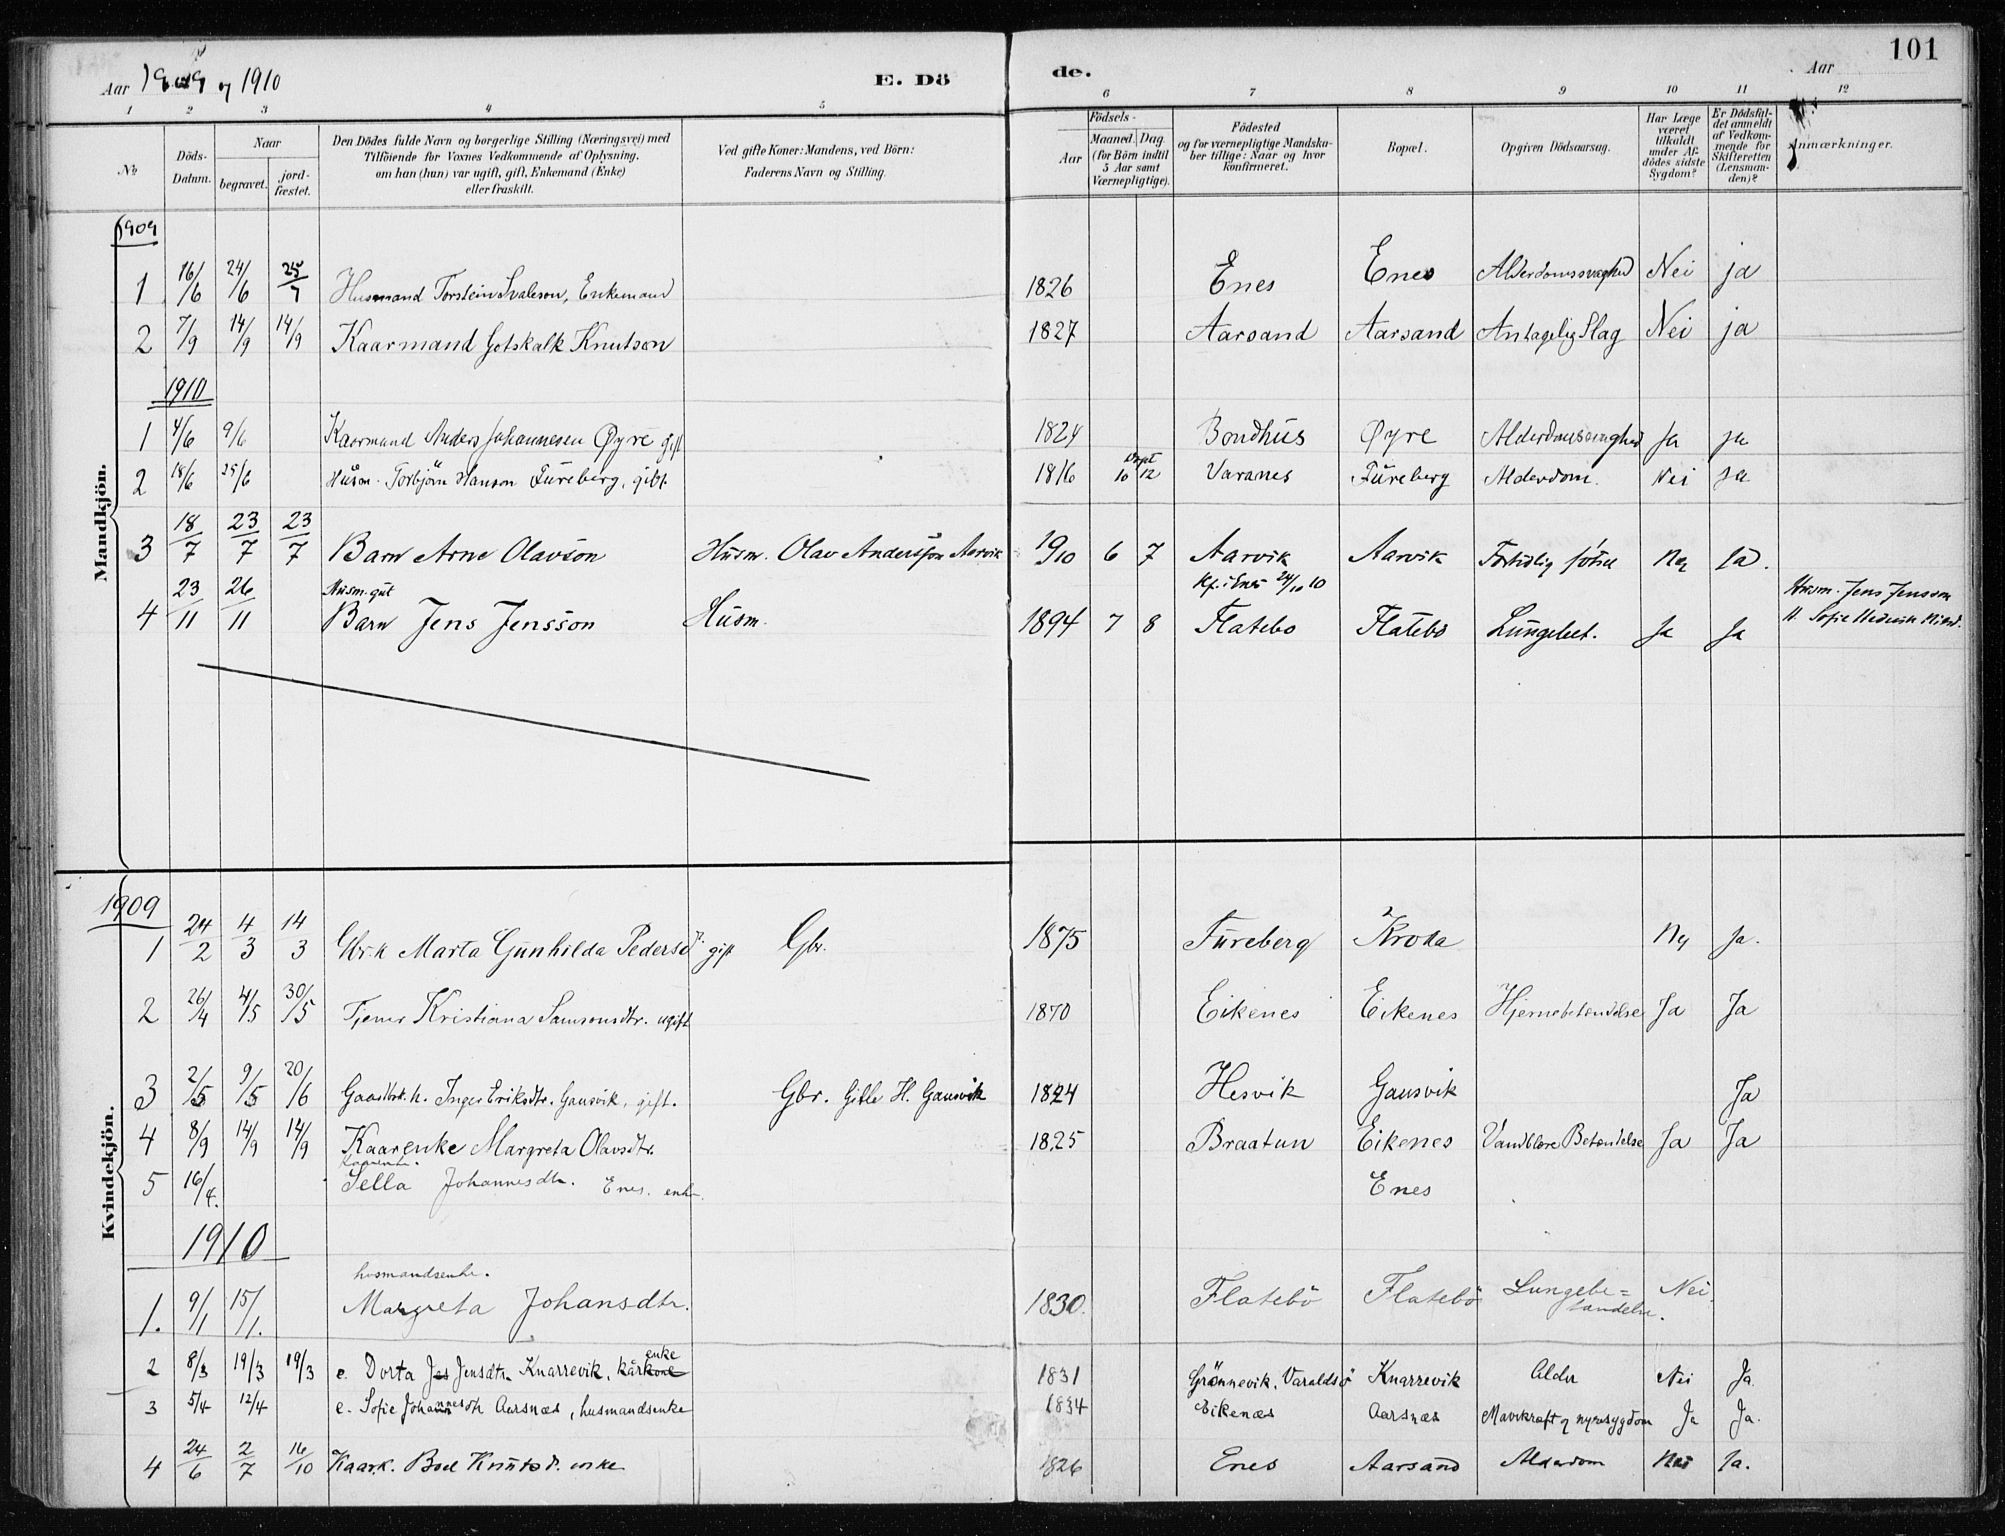 101
Aar 1909 og 1910
E. Döde.
Aar
1 2 3 4 5 6 7 8 9 10 11 12
No
Döds-Datum.
Naar
begravet.
jord-fæstet.
Den Dödes fulde Navn og borgerlige Stilling (Næringsvei) med
Tilföiende for Voxnes Vedkommende af Oplysning,
om han (hun) var ugift, gift, Enkemand (Enke)
eller fraskilt.
Ved gifte Koner: Mandens, ved Börn:
Faderens Navn og Stilling.
Födsels-
Aar
Maaned. Dag.
(for Börn indtil
5 Aar samt
Værnepligtige).
Födested
og for værnepligtige Mandska-
ber tillige: Naar og hvor
konfirmeret.
Bopæl.
Opgiven Dödsaarsag.
Har Læge
været
tilkaldt
under Af-
dödes sidste
Sygdom?
Er Dödsfal-
det anmeldt
af Vedkom-
mende for
Skifteretten
(Lensman-
den)?
Anmærkninger.
Mandkjön.
1909
1 16/6 24/6 25/7 Husmand Torstein Svaleson, Enkemand 1826 Enes Enes Alderdomssvaghed Nei ja
2 7/9 14/9 14/9 Kaarmand Gotskalk Knutson 1827 Aarsand Aarsand Antagelig Slag Nei ja
1910
1 4/6 9/6 Kaarmand Anders Johannesen Øyre gift 1824 Bondhus Øyre Alderdomssvaghed Ja ja
2 18/6 25/6 Husm. Torbjörn Hanson Fureberg, gift. 1816 10 12 Varanes Fureberg Alderdom. Nei Ja
3 18/7 23/7 23/7 Barn Arne Olavson Husm. Olav Andersson Aarvik 19/10 6 7 Aarvik Aarvik Fortidlig födsel Nei Ja.
Husm. gut
Kf. i Enes 24/10 10
Husm. Jens Jensson
4 23/11 26/11 Barn Jens Jensson Husm. 1894 7 8 Flatebo Flatebö Lungebet. Ja Ja H. Sofie
Kvindekjön.
1909
1 24/2 4/3 14/3 Gbr.k Marta Gunhilda Pedersd. gift Gbr. 1875 Fureberg Kroka Nei Ja.
2 26/4 4/5 30/5 Tjener Kristiana Samsonsdtr. ugift 1870 Eikenes Eikenes Hjernebetændelse Ja Ja
3 2/5 9/5 20/6 Gaardbrk. Inger Eriksdtr. Gausvik, gift. Gbr. Gitle H. Gausvik 1824 Hesvik Gausvik Ja
4 8/9 14/9 14/9 Kaarenke Margreta Olavsdtr. 1825 Braatun Eikenes Vandblære Betændelse Ja Ja
Kaarenke.
5 16/4. Sella Johannesdtr. Enes. enke. Enes
1910
husmandsenke.
1. 9/1 15/1. Margreta Johansdtr. 1830. Flatebö Flatebö Lungebe=tændelse. Nei.
2 8/3 19/3 19/3 e. Dorta Jensdtr. Knarrevik, kårkone enke 1831 Grönnevik, Varaldsö Knarrevik Alder Nei Ja
3 5/4 12/4 e. Sofie Johannesdtr Aarsnæs, husmandsenke 1834 Eikenæs Aarsnæs Mavekræft og nyresygdom Ja Ja.
4 24/6 2/7 16/10 Kaark. Boel Knutsd. enke 1826 Enes Aarsand Alderdom Nei Ja.